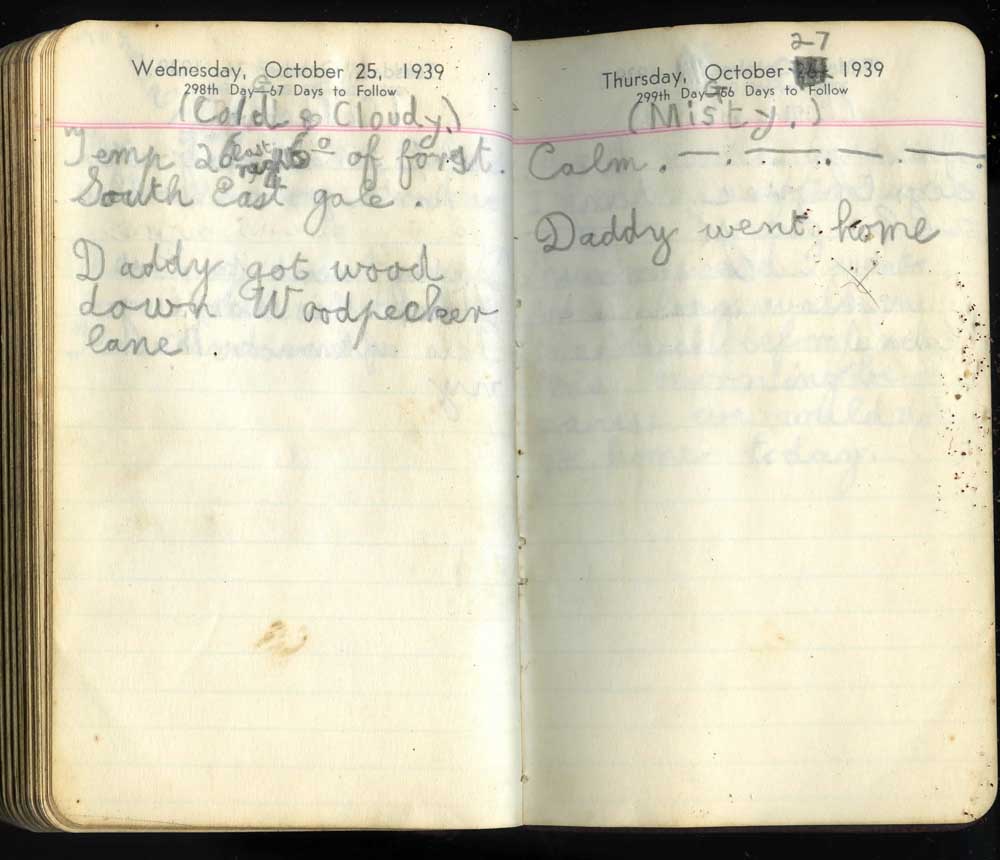 Wednesday, October 25, 1939
298th Day—67 Days to Follow
(Cold & Cloudy.)
last
Temp 26 of forst.
night
South East gale.
Daddy got wood
down Woodpecker
lane.
27
Thursday, October 26, 1939
299th Day—66 Days to Follow
(Misty.)
Calm.
Daddy went home